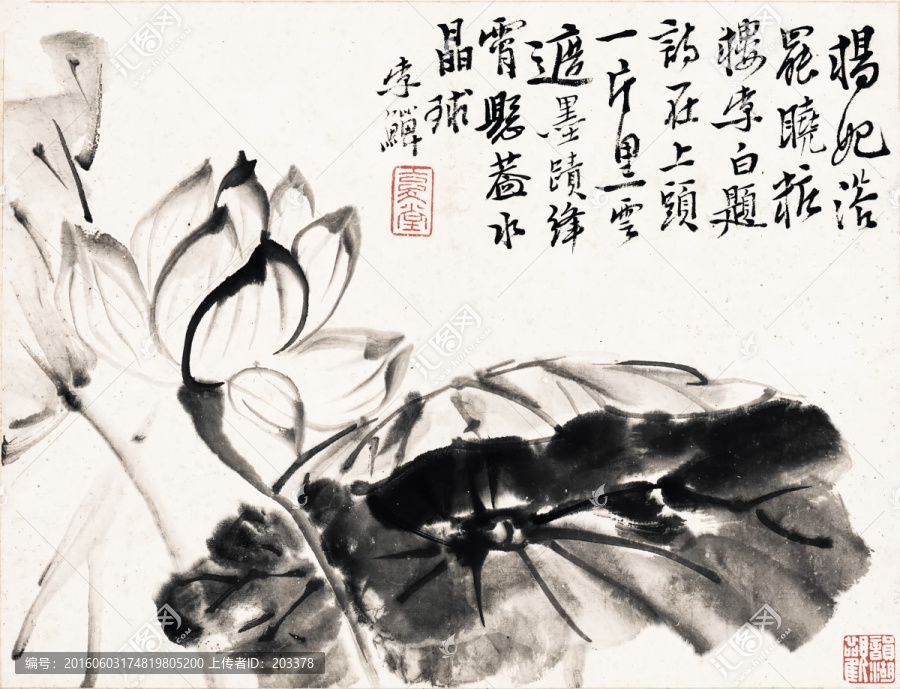 楊妃浴
罷曉粧
樓李白題
詩在上頭
一片黑雲
遮墨蹟絳
霄懸蓋水
晶球
李鱓
汇图网
编号：20160603174819805200 上传者ID：203378